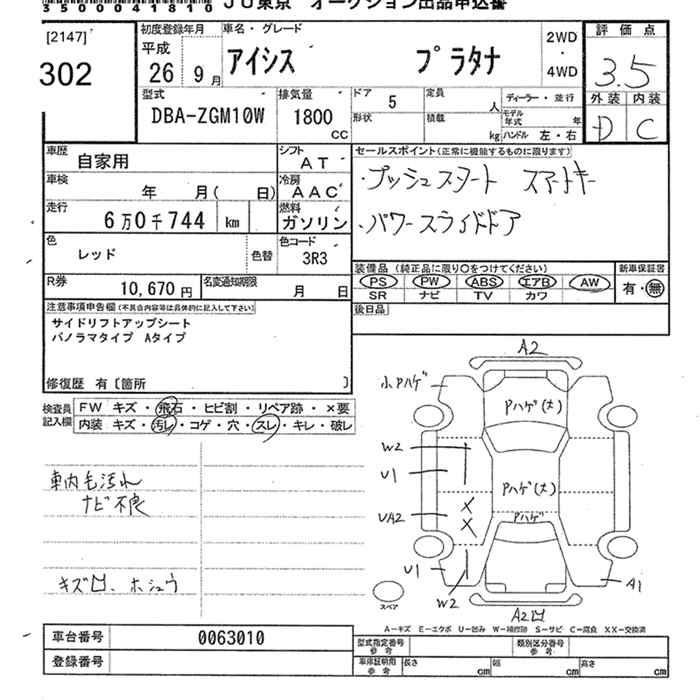 35000041810 JU東京 オークション出品申込書
[2147]
302
初度登録年月 平成 26年 9月
車名・グレード アイシス プラタナ
2WD ・ 4WD
評価点 3.5
外装 D 内装 C
型式 DBA-ZGM10W
排気量 1800 CC
ドア 5
形状
定員 人
積載 kg
ディーラー・並行
モデル年式 年
ハンドル 左・右
車歴 自家用
シフト AT
車検 年 月( 日)
冷房 AAC
走行 6万0千744 km
燃料 ガソリン
色 レッド 色替
色コード 3R3
R券 10,670円
名変通知期限 月 日
セールスポイント(正常に機能するものに限ります)
・プッシュスタート スマートキー
・パワースライドドア
装備品(純正品に限り○をつけてください)
PS PW ABS エアB AW
SR ナビ TV カワ
新車保証書 有・無
後日品
注意事項申告欄(不具合内容等は具体的に記入して下さい)
サイドリフトアップシート
パノラマタイプ Aタイプ
修復歴 有〔箇所 〕
検査員記入欄
FW キズ・飛石・ヒビ割・リペア跡・×要
内装 キズ・汚レ・コゲ・穴・スレ・キレ・破レ
車内毛汚れ
ナビ不良
キズ凹、ホシュウ
A2
小Pハゲ
Pハゲ(大)
W2
U1
Pハゲ(大)
UA2
X
X
Pハゲ
U1
W2
A1
スペア
A2凹
A-キズ E-エクボ U-凹み W-補修跡 S-サビ C-腐食 XX-交換済
車台番号 0063010
登録番号
型式指定番号 参考
類別区分番号 参考
車庫証明用 参考 長さ cm 幅 cm 高さ cm